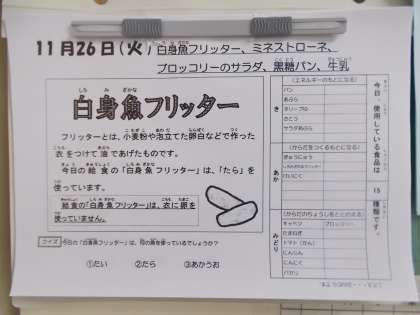 11月26日(火) 白身魚フリッター、ミネストローネ、
ブロッコリーのサラダ、黒糖パン、牛乳
しろみざかな
白身魚フリッター
フリッターとは、小麦粉や泡立てた卵白などで作った
衣をつけて油であげたものです。
今日の給食の「白身魚フリッター」は、「たら」を
使っています。
給食の「白身魚フリッター」は、衣に卵を
使っていません。
クイズ 今日の「白身魚フリッター」は、何の魚を使っているでしょうか?
①たい ②たら ③あかうお
今日、使用している食品は 15 種類です。
き
(エネルギーのもとになる)
パン
あぶら
オリーブゆ
さとう
サラダあぶら
あか
(からだをつくるもとになる)
ぎゅうにゅう
だいにく
みどり
(からだのちょうしをととのえる)
キャベツ ブロッコリー
たまねぎ
トマト(かん)
にんじん
にんにく
パセリ